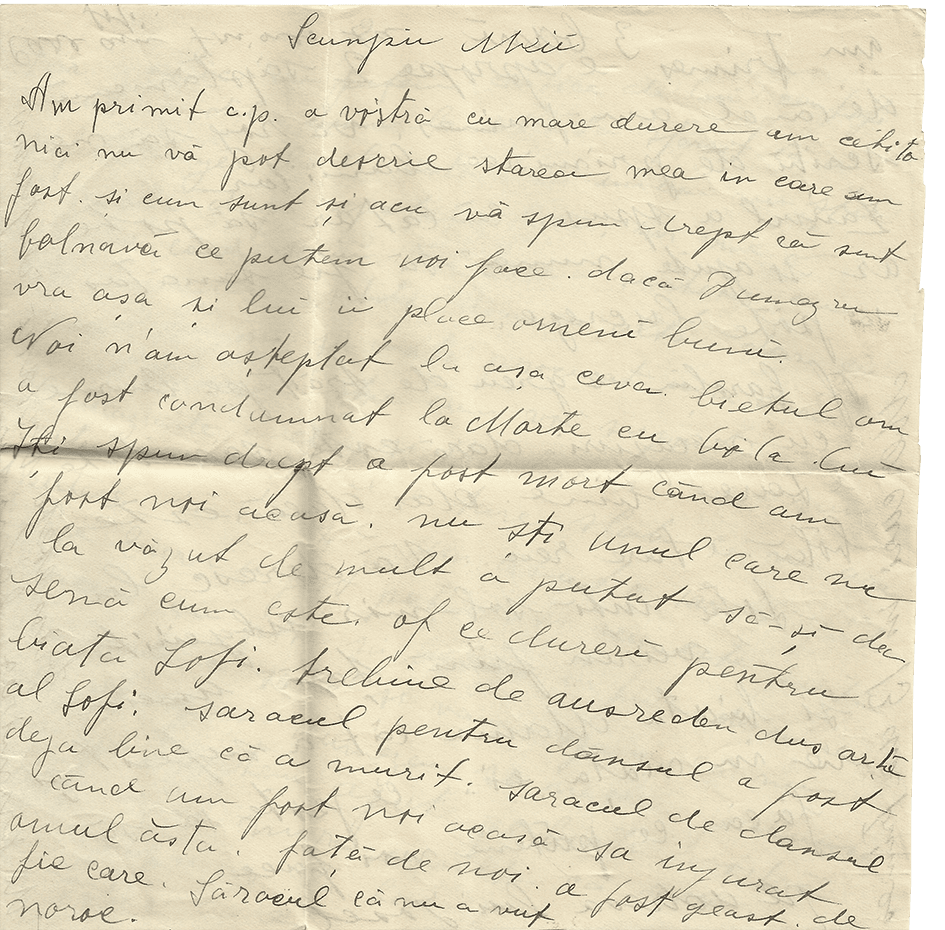 Scunpii Mei
Am primit c.p. a vóstră cu mare durere am cétito
nici nu vă pot descrie starea mea in care am
fost. si cum sunt și acu vă spun drept că sunt
bolnavă ce putem noi face. dacă Dumezeu
vra așa si lui ii place omeni buni.
Noi n'am așteptat la așa ceva. bietul om
a fost condumnat la Morte cu bola lui
Iți spun drept a fost mort când am
fost noi acasă. nu ști unul care nu
la văzut de mult a putut să-și dea
semă cum este. of ce dureri pentru
biata Sofi. trebine de ausreden dus
al Sofi. saracul pentru dânsul a fost
deja bine că a murit. saracul de dansul
când am fost noi acasă sa injurat
omul ăsta. fată de noi. a fost de
fie care. Săracul că nu a vut
noroc.